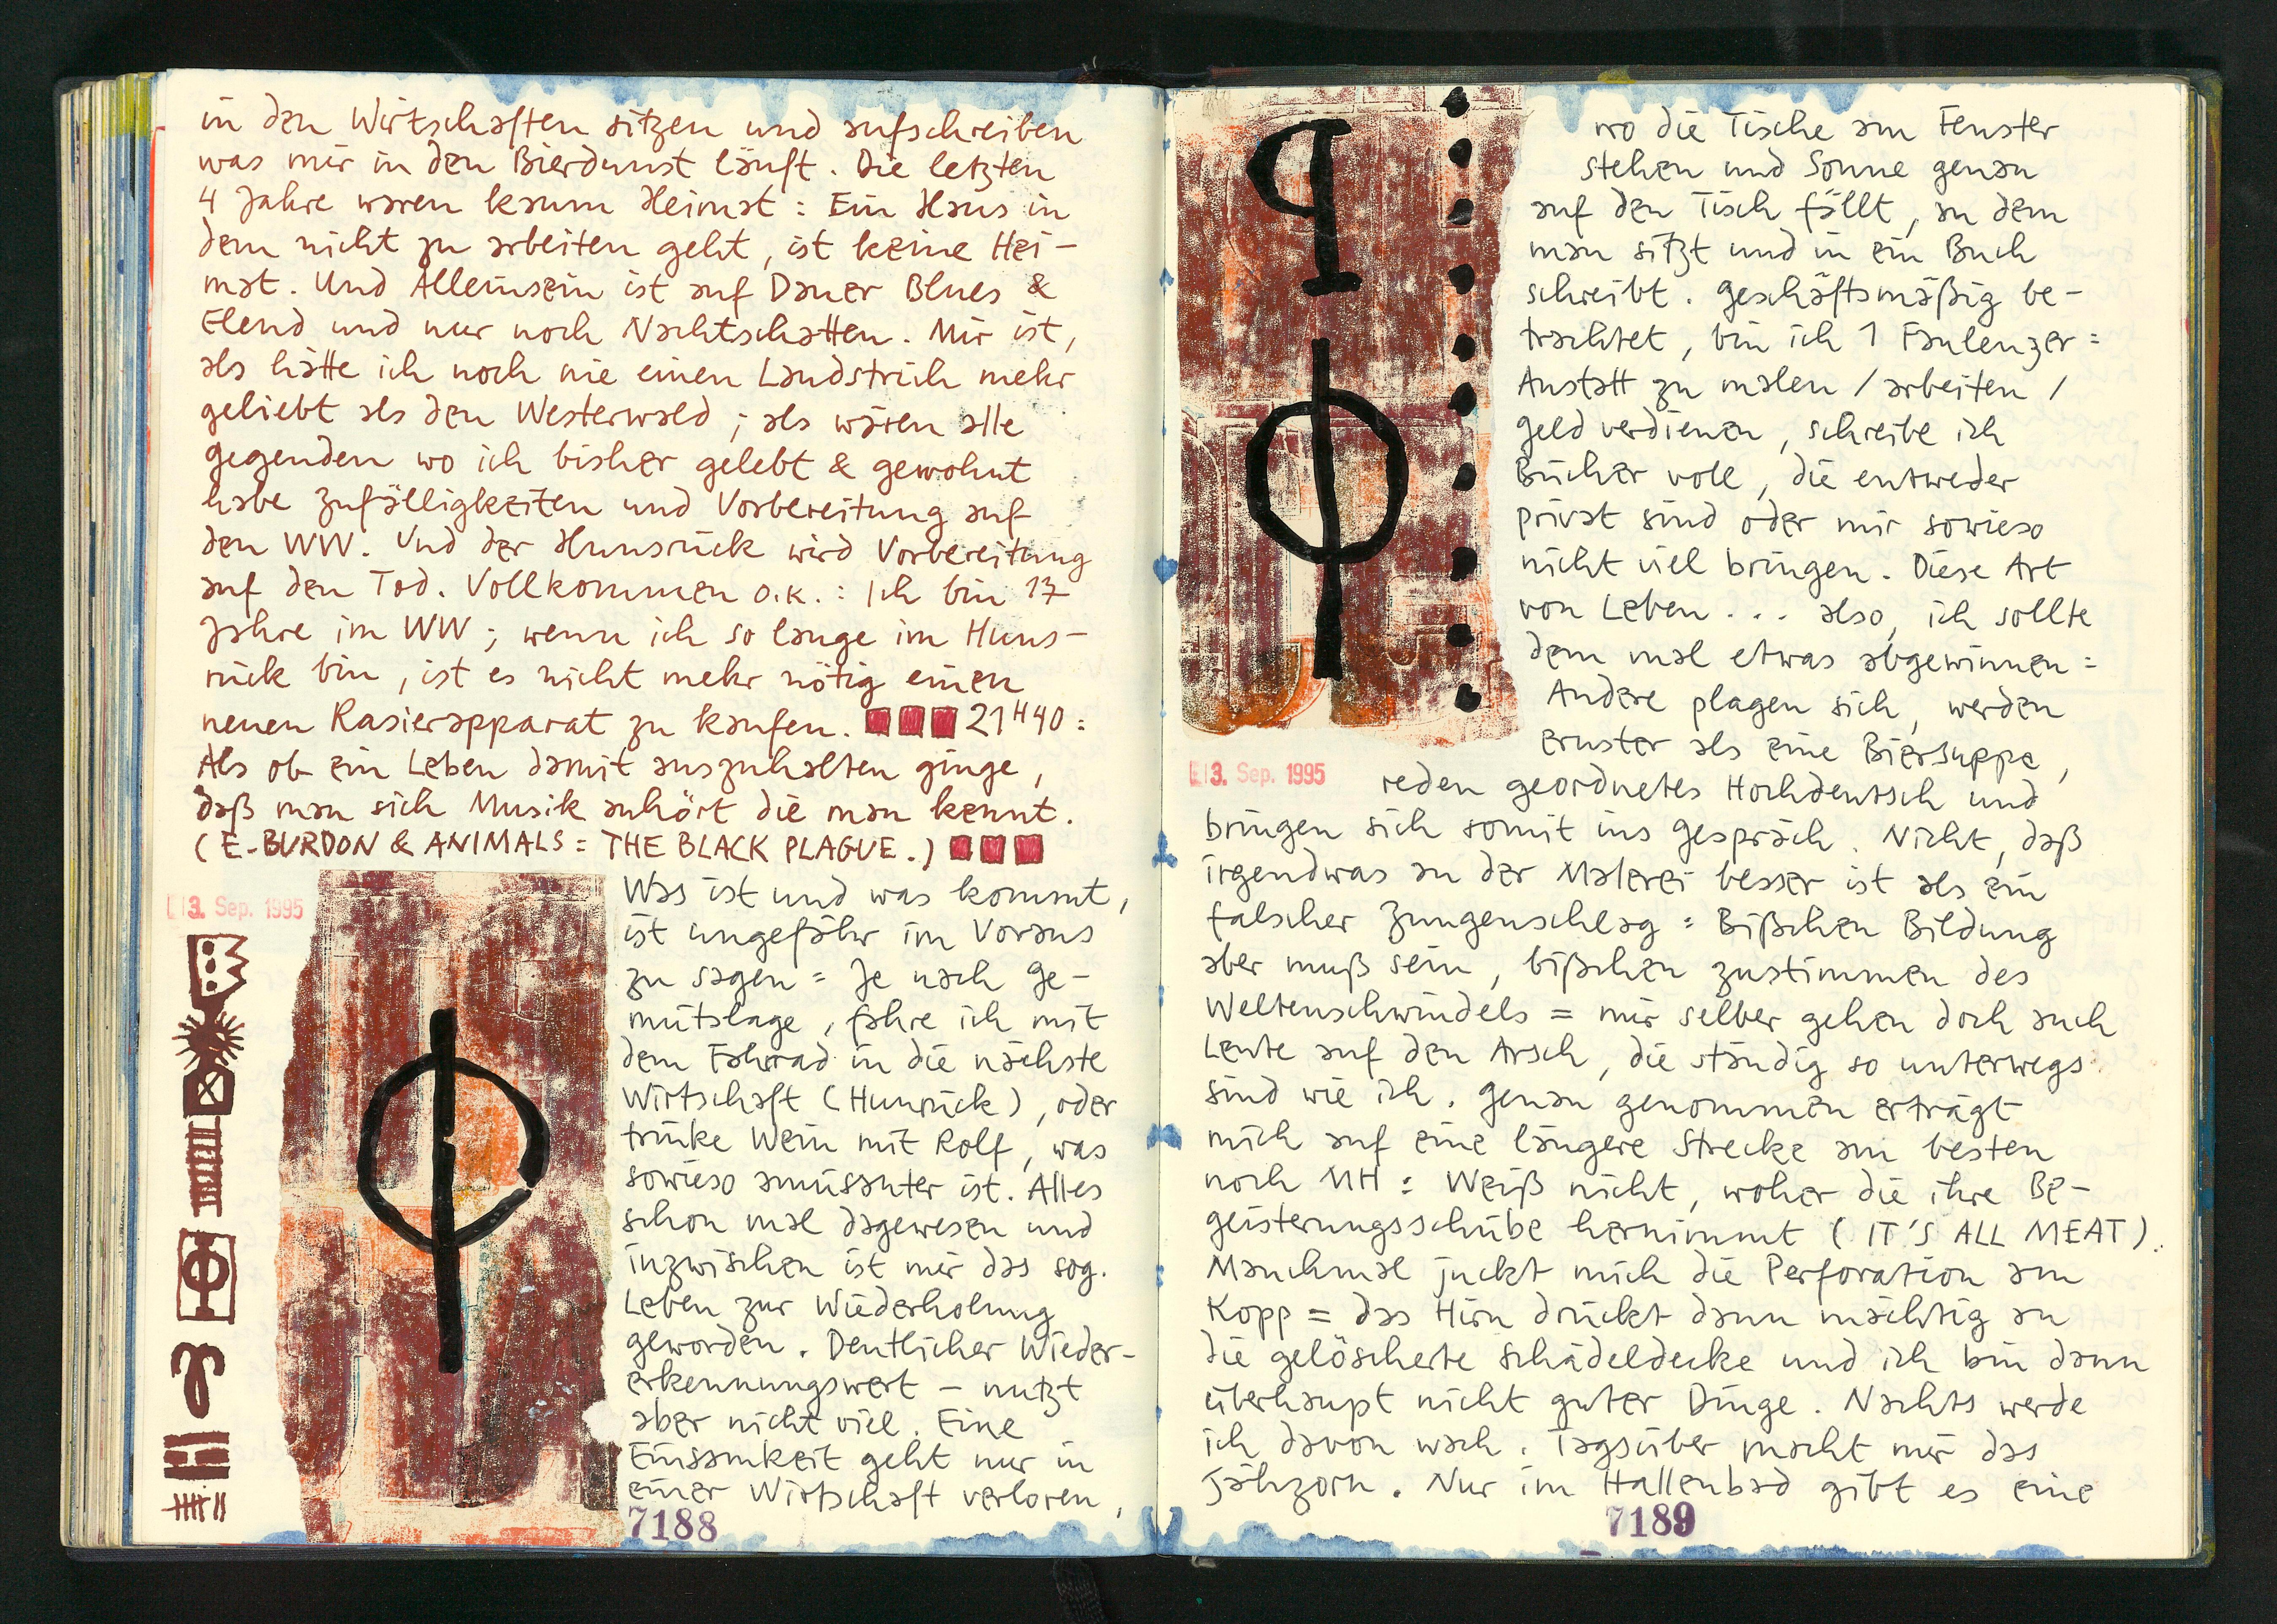 in den Wirtschaften sitzen und aufschreiben
was mir in den Bierdunst läuft. Die letzten
4 Jahre waren kaum Heimat: Ein Haus in
dem nicht zu arbeiten geht, ist keine Hei-
mat. Und Alleinsein ist auf Dauer Blues &
Elend und nur noch Nachtschatten. Mir ist,
als hätte ich noch nie einen Landstrich mehr
geliebt als den Westerwald; als wären alle
Gegenden wo ich bisher gelebt & gewohnt
habe Zufälligkeiten und Vorbereitung auf
den WW. Und der Hunsrück wird Vorbereitung
auf den Tod. Vollkommen o.k.: Ich bin 17
Jahre im WW; wenn ich so lange im Huns-
rück bin, ist es nicht mehr nötig einen
neuen Rasierapparat zu kaufen. 21H40:
Als ob ein Leben damit auszuhalten ginge,
daß man sich Musik anhört die man kennt.
(E-BURDON & ANIMALS = THE BLACK PLAGUE.)
3. Sep. 1995
Was ist und was kommt,
ist ungefähr im Voraus
zu sagen = Je nach Ge-
mütslage, fahre ich mit
dem Fahrrad in die nächste
Wirtschaft (Hunrück), oder
trinke Wein mit Rolf, was
sowieso amüsanter ist. Alles
schon mal dagewesen und
inzwischen ist mir das sog.
Leben zur Wiederholung
geworden. Deutlicher Wieder-
erkennungswert – nutzt
aber nicht viel. Eine
Einsamkeit geht nur in
einer Wirtschaft verloren,
7188
wo die Tische am Fenster
stehen und Sonne genau
auf den Tisch fällt, an dem
man sitzt und in ein Buch
schreibt. Geschäftsmäßig be-
trachtet, bin ich 1 Faulenzer:
Anstatt zu malen / arbeiten /
Geld verdienen, schreibe ich
Bücher voll, die entweder
privat sind oder mir sowieso
nicht viel bringen. Diese Art
von Leben ... also, ich sollte
dem mal etwas abgewinnen =
Andere plagen sich, werden
ernster als eine Biersuppe,
3. Sep. 1995
reden geordnetes Hochdeutsch und
bringen sich somit ins Gespräch. Nicht, daß
irgendwas an der Malerei besser ist als ein
falscher Zungenschlag: Bißchen Bildung
aber muß sein, bißchen zustimmen des
Weltenschwindels = mir selber gehen doch auch
Leute auf den Arsch, die ständig so unterwegs
sind wie ich. Genau genommen erträgt
mich auf eine längere Strecke am besten
noch MH: Weiß nicht, woher die ihre Be-
geisterungsschübe hernimmt (IT'S ALL MEAT).
Manchmal juckt mich die Perforation am
Kopp = das Hirn drückt dann mächtig an
die gelöscherte Schädeldecke und ich bin dann
überhaupt nicht guter Dinge. Nachts werde
ich davon wach. Tagsüber macht mir das
Jähzorn. Nur im Hallenbad gibt es eine
7189